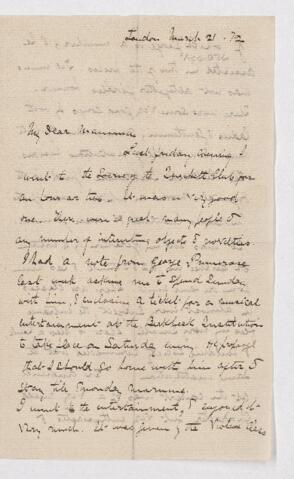 London March 21 . 72
My Dear Mamma
Last Friday evening I
went to the Soirée of the Quekett Club for
an hour or two. It was a v. good
one. There were a great many people &
any number of interesting objects & novelties.
I had a note from George Primrose
last week asking me to spend Sunday
with him, & enclosing a ticket for a musical
entertainment at the Birkbeck Institution
to take place on Saturday eveng. He proposed
that I should go home with him after &
stay till Monday morning.
I went to the entertainment, & enjoyed it
very much. It was given by the Violin Class